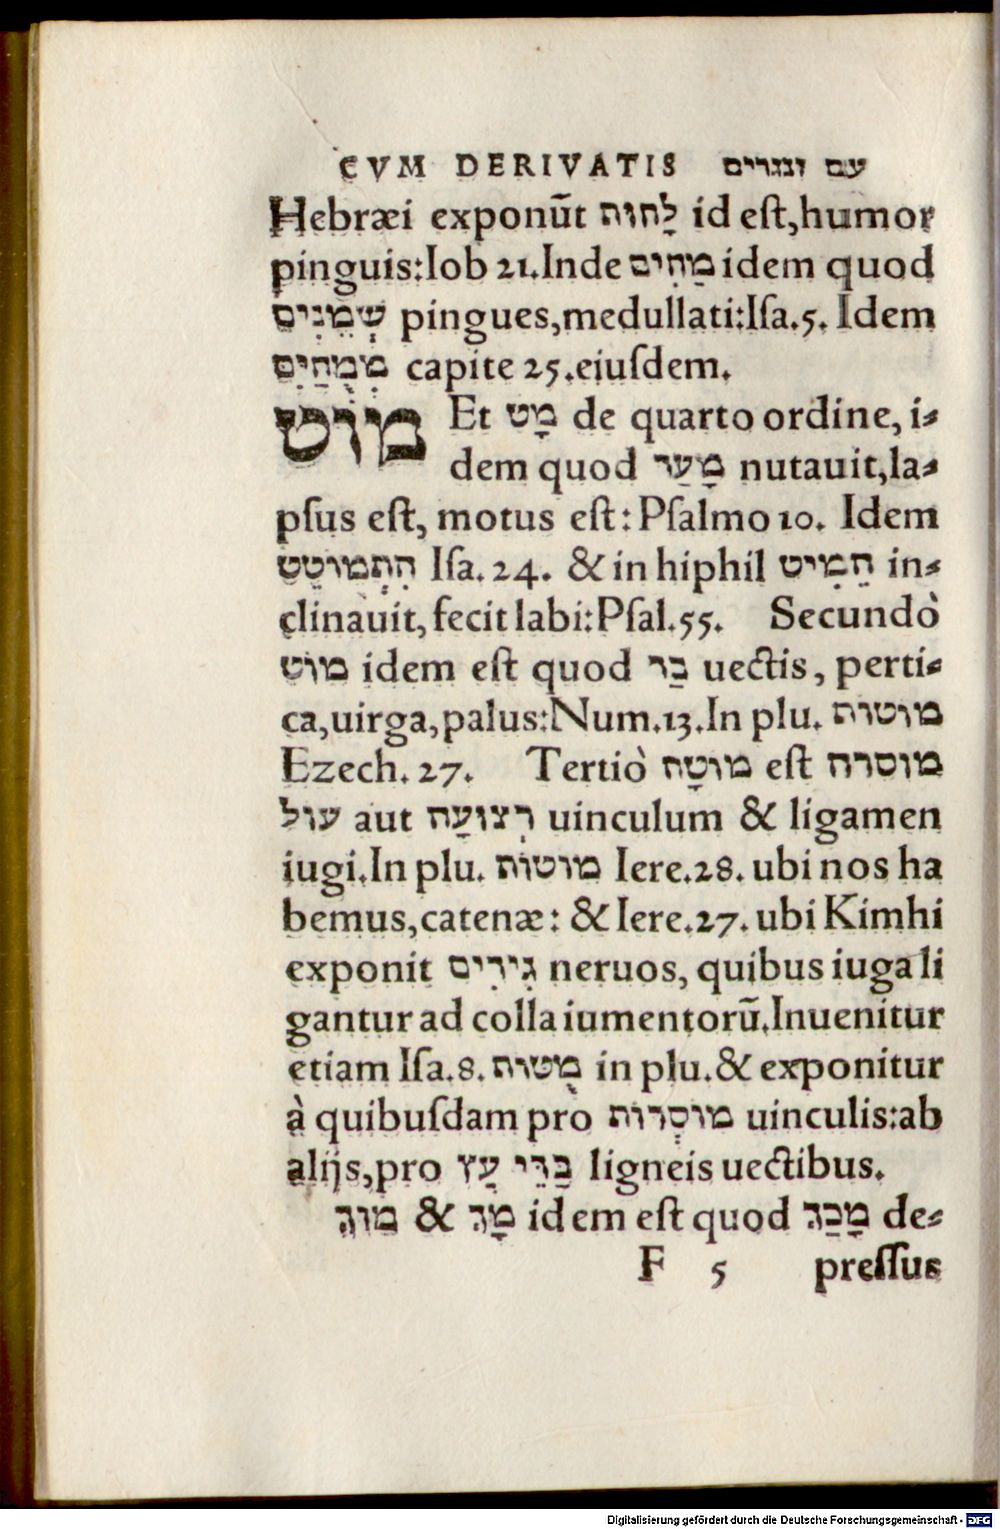 CVM DERIVATIS עם ונגזרים
Hebræi exponũt לַחוּת id eſt,humor
pinguis:Iob 21.Inde מֵחִים idem quod
שְׁמֵנִים pingues,medullati:Iſa.5. Idem
מְמֻחָיִם capite 25.eiuſdem.
מוֹט Et מָט de quarto ordine, i⸗
dem quod מָעַד nutauit,la⸗
pſus eſt, motus eſt: Pſalmo 10. Idem
הִתְמוֹטֵט Iſa. 24. & in hiphil הֵמִיט in⸗
clinauit, fecit labi:Pſal.55. Secundò
מוֹט idem eſt quod בַּד uectis, perti⸗
ca,uirga,palus:Num.13.In plu. מוטות
Ezech. 27. Tertiò מוֹטָה eſt מוסרה
עול aut רְצוּעָה uinculum & ligamen
iugi.In plu. מוטוֹת Iere.28. ubi nos ha
bemus,catenæ: & Iere.27. ubi Kimhi
exponit גִּידִים neruos, quibus iuga li
gantur ad colla iumentorũ.Inuenitur
etiam Iſa.8. מֻטות in plu.& exponitur
à quibuſdam pro מוֹסְרוֹת uinculis:ab
alijs,pro בַּדֵּי עֵץ ligneis uectibus.
מוּךְ & מָךְ idem eſt quod מָכַךְ de⸗
F 5 preſſus
Digitalisierung gefördert durch die Deutsche Forschungsgemeinschaft - DFG